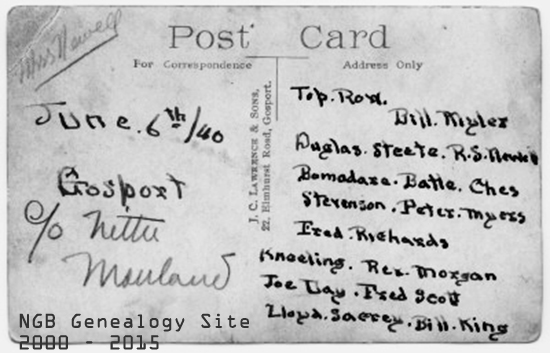 Miss Newell
Post Card
For Correspondence
Address Only
June. 6th/40
Gosport
c/o Nettie
J. C. LAWRENCE & SONS,
22, Elmhurst Road, Gosport.
Top. Row.
Bill.
Duglas. Steete. R.S. Newell
Bomadare. Batle. Ches
Stevenson. Peter. Myers
Fred. Richards
Kneeling. Rex. Morgan
Joe Day. Fred Scott
Lloyd. Sacrey. Bill. King
NGB Genealogy Site
2000 - 2015